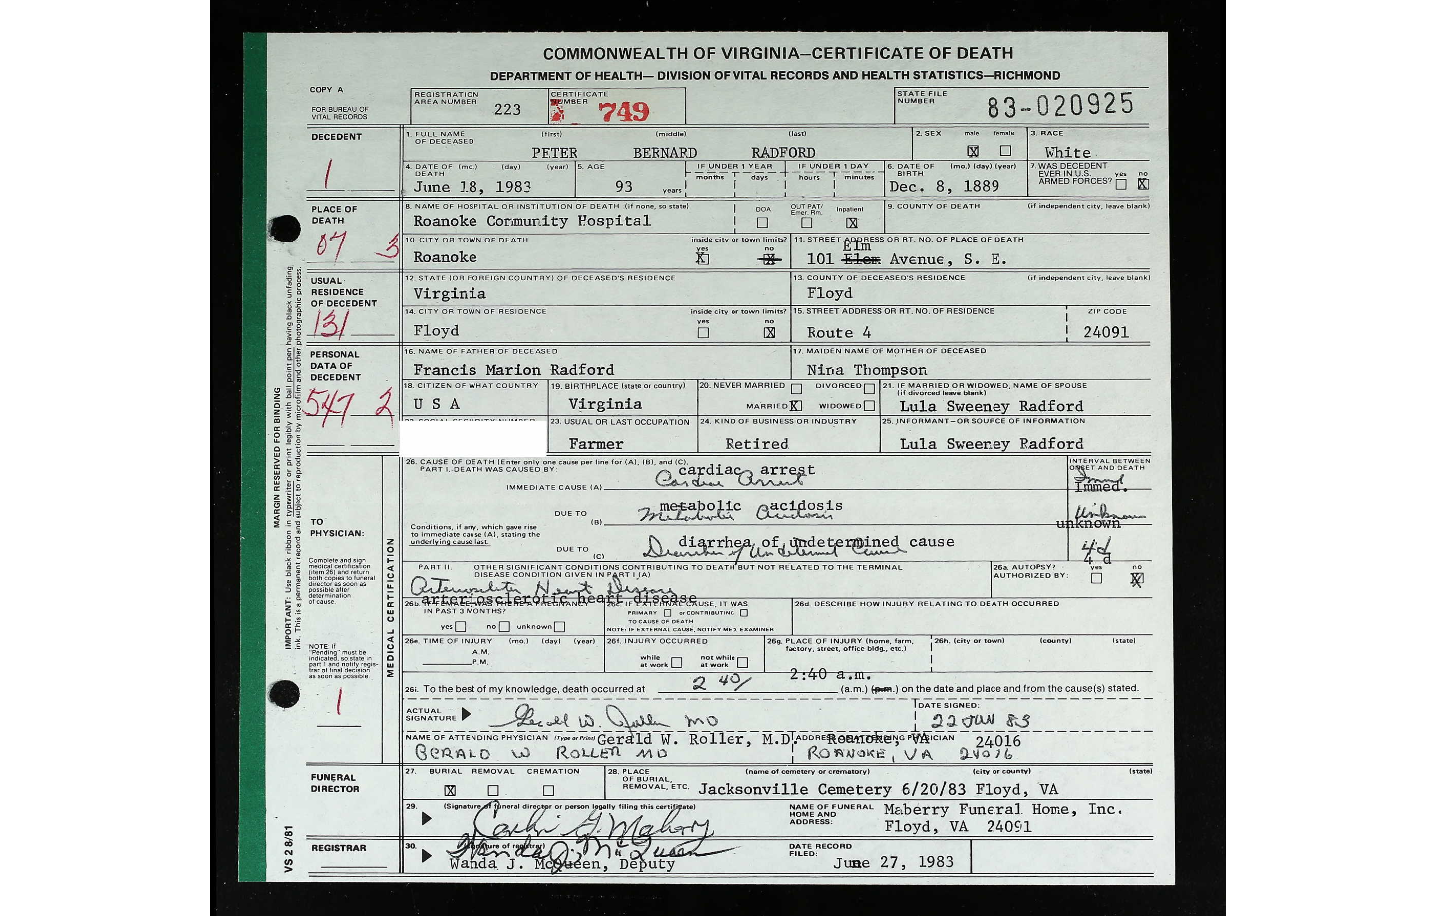 COMMONWEALTH OF VIRGINIA—CERTIFICATE OF DEATH
DEPARTMENT OF HEALTH— DIVISION OF VITAL RECORDS AND HEALTH STATISTICS—RICHMOND
COPY A
FOR BUREAU OF VITAL RECORDS
REGISTRATION AREA NUMBER 223
CERTIFICATE NUMBER 749
STATE FILE NUMBER 83-020925
DECEDENT
1
1. FULL NAME OF DECEASED (first) (middle) (last)
PETER BERNARD RADFORD
2. SEX male female
X
3. RACE
White
4. DATE OF DEATH (mo.) (day) (year)
June 18, 1983
5. AGE
93 years
IF UNDER 1 YEAR months days
IF UNDER 1 DAY hours minutes
6. DATE OF BIRTH (mo.) (day) (year)
Dec. 8, 1889
7. WAS DECEDENT EVER IN U.S. ARMED FORCES? yes no
X
PLACE OF DEATH
8. NAME OF HOSPITAL OR INSTITUTION OF DEATH (if none, so state)
Roanoke Community Hospital
DOA OUT PAT/ Emer. Rm. Inpatient
X
9. COUNTY OF DEATH (if independent city, leave blank)
10. CITY OR TOWN OF DEATH inside city or town limits? yes no
Roanoke X X
11. STREET ADDRESS OR RT. NO. OF PLACE OF DEATH
Elm
101 Elem Avenue, S. E.
USUAL RESIDENCE OF DECEDENT
131
12. STATE (OR FOREIGN COUNTRY) OF DECEASED'S RESIDENCE
Virginia
13. COUNTY OF DECEASED'S RESIDENCE (if independent city, leave blank)
Floyd
14. CITY OR TOWN OF RESIDENCE inside city or town limits? yes no
Floyd X
15. STREET ADDRESS OR RT. NO. OF RESIDENCE ZIP CODE
Route 4 24091
PERSONAL DATA OF DECEDENT
547 2
16. NAME OF FATHER OF DECEASED
Francis Marion Radford
17. MAIDEN NAME OF MOTHER OF DECEASED
Nina Thompson
18. CITIZEN OF WHAT COUNTRY
U S A
19. BIRTHPLACE (state or country)
Virginia
20. NEVER MARRIED DIVORCED
MARRIED X WIDOWED
21. IF MARRIED OR WIDOWED, NAME OF SPOUSE (if divorced leave blank)
Lula Sweeney Radford
23. USUAL OR LAST OCCUPATION
Farmer
24. KIND OF BUSINESS OR INDUSTRY
Retired
25. INFORMANT—OR SOURCE OF INFORMATION
Lula Sweeney Radford
MARGIN RESERVED FOR BINDING
IMPORTANT: Use black ribbon in typewriter or print legibly with ball point pen having black unfading
ink. This is a permanent record and subject to reproduction by microfilm and other photographic process.
TO PHYSICIAN:
Complete and sign medical certification (item 26) and return both copies to funeral director as soon as possible after determination of cause.
NOTE: If "Pending" must be indicated, so state in part 1 and notify registrar of final decision as soon as possible.
1
MEDICAL CERTIFICATION
26. CAUSE OF DEATH (Enter only one cause per line for (A), (B), and (C).
PART I. DEATH WAS CAUSED BY:
INTERVAL BETWEEN ONSET AND DEATH
cardiac arrest
IMMEDIATE CAUSE (A) Cardiac Arrest
Immed
Immed.
metabolic acidosis
DUE TO (B) Metabolic Acidosis
Unknown
unknown
Conditions, if any, which gave rise to immediate cause (A), stating the underlying cause last.
diarrhea of undetermined cause
DUE TO (C) Diarrhea of Undetermined Cause
4d
4 d
PART II. OTHER SIGNIFICANT CONDITIONS CONTRIBUTING TO DEATH BUT NOT RELATED TO THE TERMINAL DISEASE CONDITION GIVEN IN PART I (A)
Heart Disease
arteriosclerotic heart disease
26a. AUTOPSY? AUTHORIZED BY: yes no
X
26b. IF FEMALE, WAS THERE A PREGNANCY IN PAST 3 MONTHS?
yes no unknown
26c. IF EXTERNAL CAUSE, IT WAS
PRIMARY or CONTRIBUTING
TO CAUSE OF DEATH
NOTE: IF EXTERNAL CAUSE, NOTIFY MED. EXAMINER
26d. DESCRIBE HOW INJURY RELATING TO DEATH OCCURRED
26e. TIME OF INJURY (mo.) (day) (year)
A.M.
P.M.
26f. INJURY OCCURRED
while at work not while at work
26g. PLACE OF INJURY (home, farm, factory, street, office bldg., etc.)
26h. (city or town) (county) (state)
2:40 a.m.
26i. To the best of my knowledge, death occurred at 2 40 (a.m.) (p.m.) on the date and place and from the cause(s) stated.
ACTUAL SIGNATURE Gerald W. Roller MD
DATE SIGNED:
22 JUN 83
NAME OF ATTENDING PHYSICIAN (Type or Print) Gerald W. Roller, M.D.
ADDRESS OF ATTENDING PHYSICIAN Roanoke, VA 24016
GERALD W ROLLER MD ROANOKE, VA 24016
FUNERAL DIRECTOR
27. BURIAL REMOVAL CREMATION
X
28. PLACE OF BURIAL, REMOVAL, ETC. (name of cemetery or crematory) (city or county) (state)
Jacksonville Cemetery 6/20/83 Floyd, VA
29. (Signature of funeral director or person legally filing this certificate)
NAME OF FUNERAL HOME AND ADDRESS:
Maberry Funeral Home, Inc.
Floyd, VA 24091
REGISTRAR
30. (Signature of registrar)
Wanda J. McQueen
Wanda J. McQueen, Deputy
DATE RECORD FILED:
June 27, 1983
VS 2 8/81